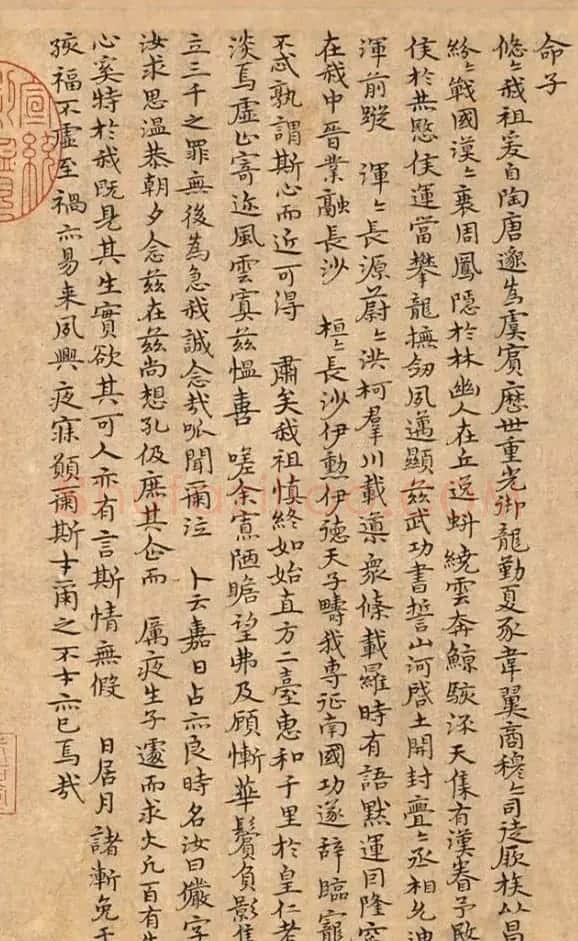 命子
悠〻我祖爰自陶唐邈為虞賓歷世重光御龍勤夏豕韋翼商穆〻司徒厥族以昌
紛〻戰國漠〻衰周鳳隱於林幽人在丘逸虯繞雲奔鯨駭流天集有漢眷予愍
侯於赫愍侯運當攀龍撫劒夙邁顯茲武功書誓山河啓土開封亹〻丞相允迪
渾前蹤 渾〻長源蔚〻洪柯羣川載導衆條載羅時有語默運因隆窊
在我中晉業融長沙 桓〻長沙伊勳伊德天子疇我專征南國功遂辭臨寵
不忒孰謂斯心而近可得 肅矣我祖慎終如始直方二臺惠和千里於皇仁考
淡焉虛止寄迹風雲寘茲慍喜 嗟余寡陋瞻望弗及顧慚華鬢負影隻
立三千之罪無後為急我誠念哉呱聞爾泣 卜云嘉日占亦良時名汝曰儼字
汝求思溫恭朝夕念茲在茲尚想孔伋庶其企而 厲夜生子遽而求火凡百有
心奚特於我既見其生實欲其可人亦有言斯情無假 日居月諸漸免于
孩福不虛至禍亦易來夙興夜寐願爾斯才爾之不才亦已焉哉
宣統